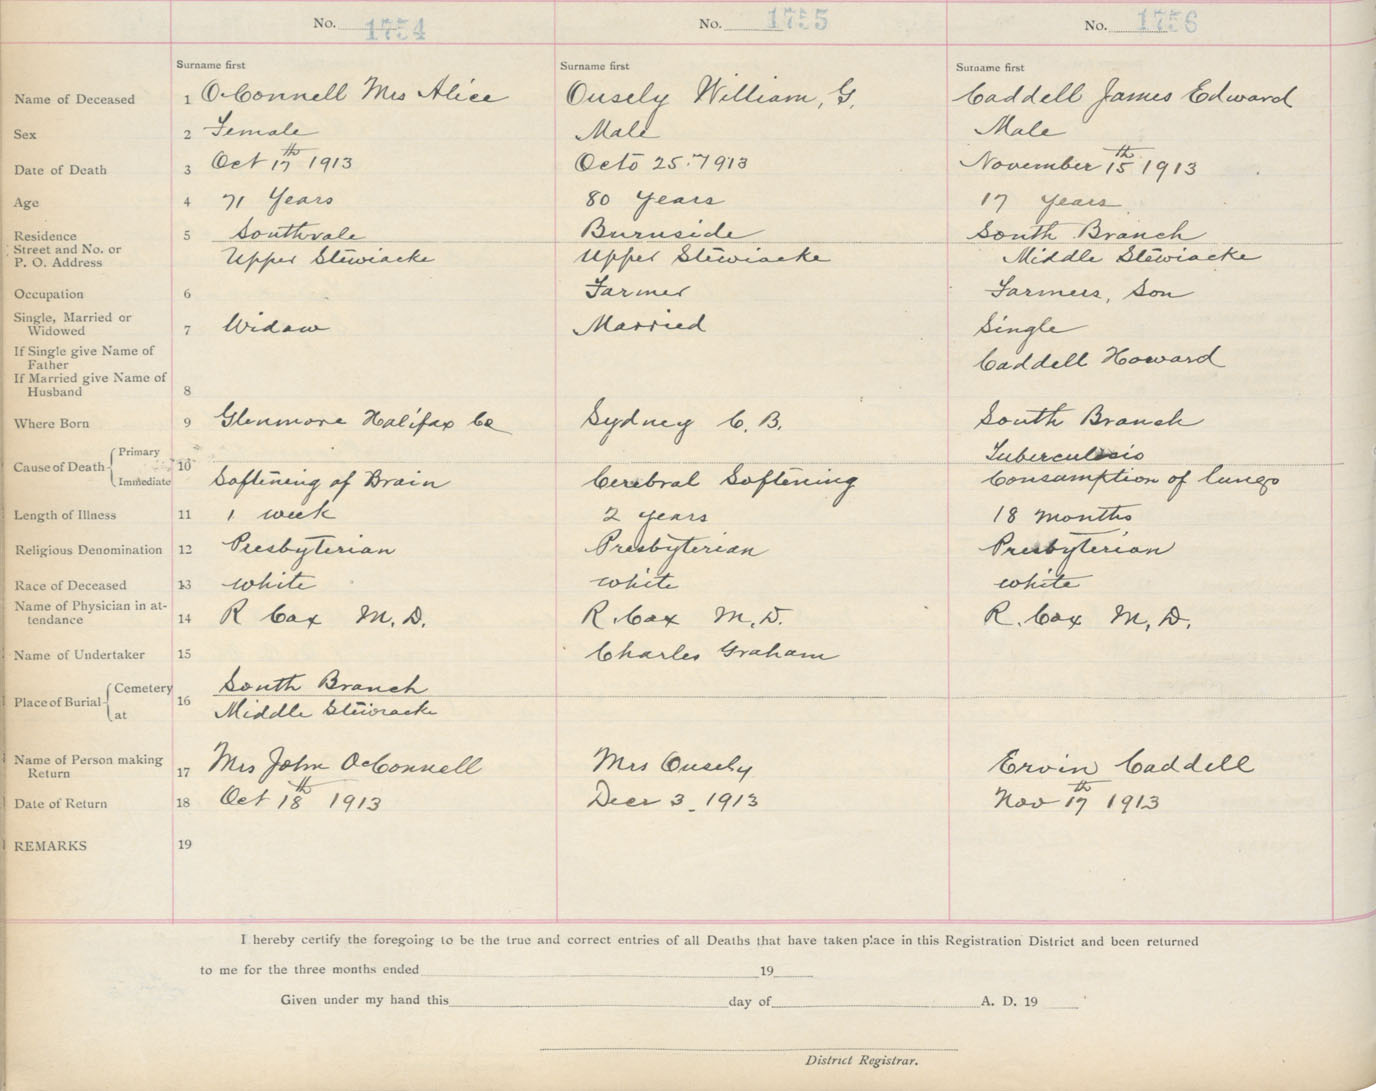 No. 1754 No. 1755 No. 1756
Surname first Surname first Surname first
Name of Deceased 1 O'Connell Mrs Alice Ousely William, G. Caddell James Edward
Sex 2 Female Male Male
Date of Death 3 Oct 17th 1913 Octo 25th 1913 November 15th 1913
Age 4 71 Years 80 years 17 years
Residence 5 Southvale Burnside South Branch
Street and No. or
P. O. Address Upper Stewiacke Upper Stewiacke Middle Stewiacke
Occupation 6 Farmer Farmers, Son
Single, Married or
Widowed 7 Widow Married Single
If Single give Name of
Father Caddell Howard
If Married give Name of
Husband 8
Where Born 9 Glenmore Halifax Co Sydney C. B. South Branch
Cause of Death Primary 10 Tuberculosis
Immediate Softening of Brain Cerebral Softening Consumption of lungs
Length of Illness 11 1 week 2 years 18 months
Religious Denomination 12 Presbyterian Presbyterian Presbyterian
Race of Deceased 13 white white white
Name of Physician in at-
tendance 14 R Cox M. D. R. Cox M. D. R. Cox M. D.
Name of Undertaker 15 Charles Graham
Place of Burial Cemetery 16 South Branch
at Middle Stewiacke
Name of Person making
Return 17 Mrs John O'Connell Mrs Ousely Ervin Caddell
Date of Return 18 Oct 18th 1913 Decr 3, 1913 Nov 17th 1913
REMARKS 19
I hereby certify the foregoing to be the true and correct entries of all Deaths that have taken place in this Registration District and been returned
to me for the three months ended 19
Given under my hand this day of A. D. 19
District Registrar.